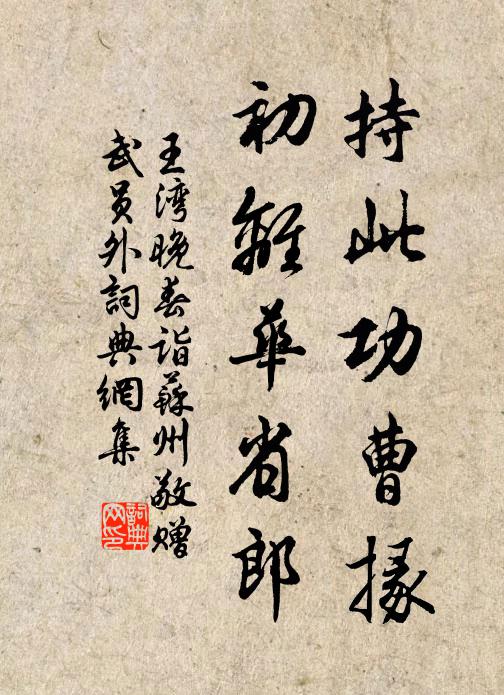 持此功曹掾
初離華省郎
王湾晚春詣蘇州敬赠
武員外詞典網集
詞典网印